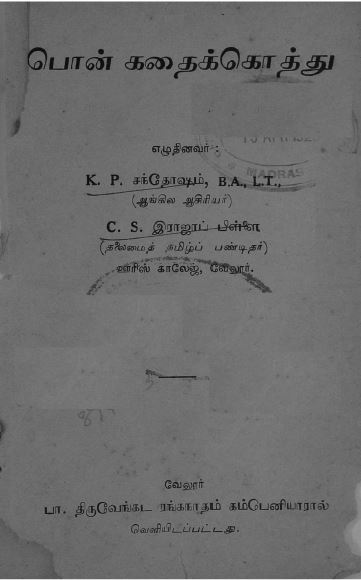 பொன் கதைக்கொத்து
எழுதினவர் :
MADRAS
K. P. சந்தோஷம், B.A., L.T.,
(ஆங்கில ஆசிரியர்)
C. S. இராஜாப் பிள்ளை
(தலைமைத் தமிழ்ப் பண்டிதர்)
ஊரிஸ் காலேஜ், வேலூர்.
வேலூர்
பா. திருவேங்கட ரங்கநாதம் கம்பெனியாரால்
வெளியிடப்பட்டது.